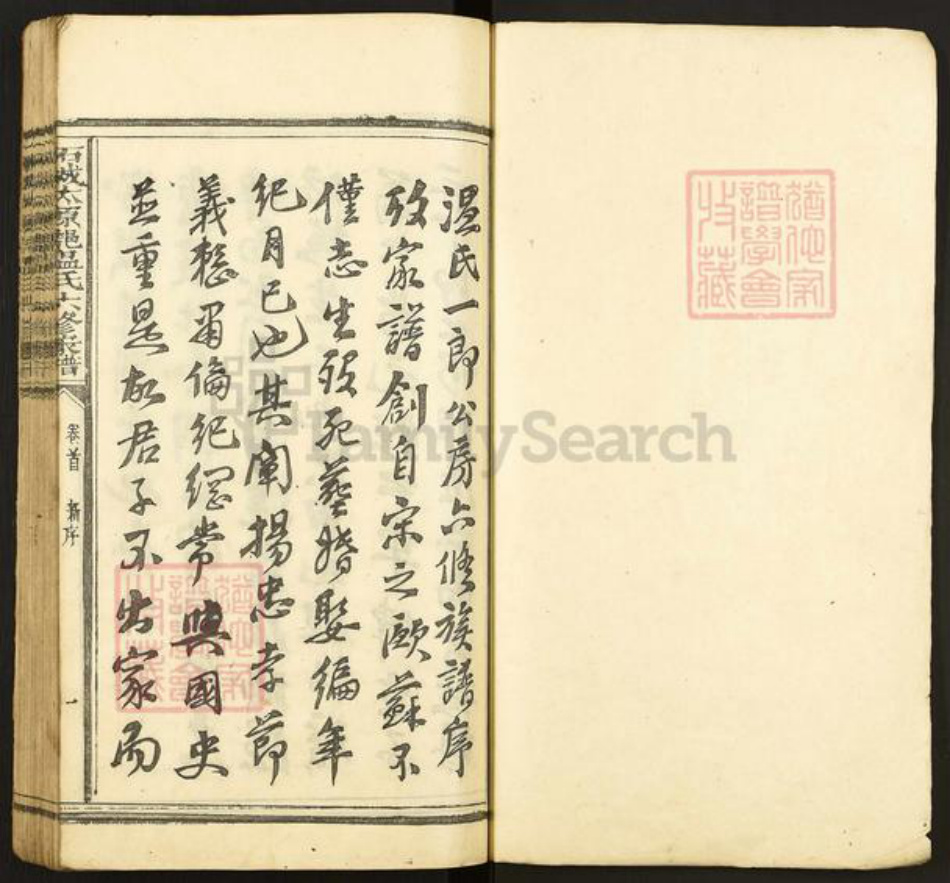 温氏一郎公房六修族譜序
攷家譜創自宋之歐蘇不
僅志生殁死葬婚娶編年
紀月已也其闡揚忠孝節
義整肅倫紀綱常與國史
並重是故君子不出家而
石城太原邑温氏六修家譜
卷首 新序
一
猶他家
譜學會
收藏
猶他家
譜學會
收藏
FamilySearch